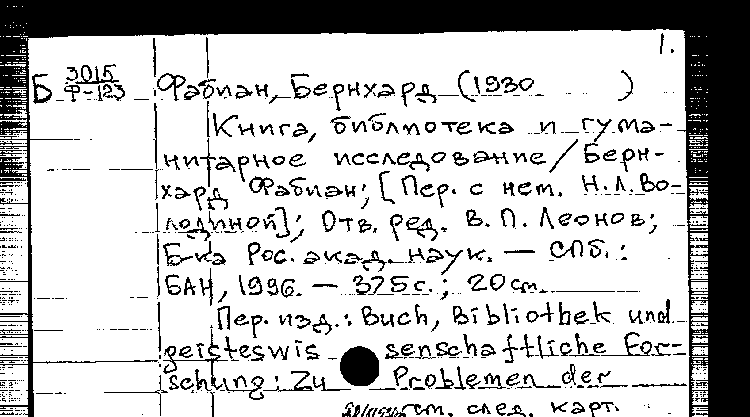 1.
Б 3015/Ф-123 Фабиан, Бернхард (1930 )
Книга, библиотека и гума-
нитарное исследование/Берн-
хард Фабиан; [Пер. с нем. Н.Л.Во-
лодиной]; Отв. ред. В.П. Леонов;
Б-ка Рос. акад. наук. — СПб.:
БАН, 1996. — 375 с.; 20 см.
Пер. изд.: Buch, Bibliothek und
geisteswissenschaftliche For-
schung: Zu Problemen der
см. след. карт.